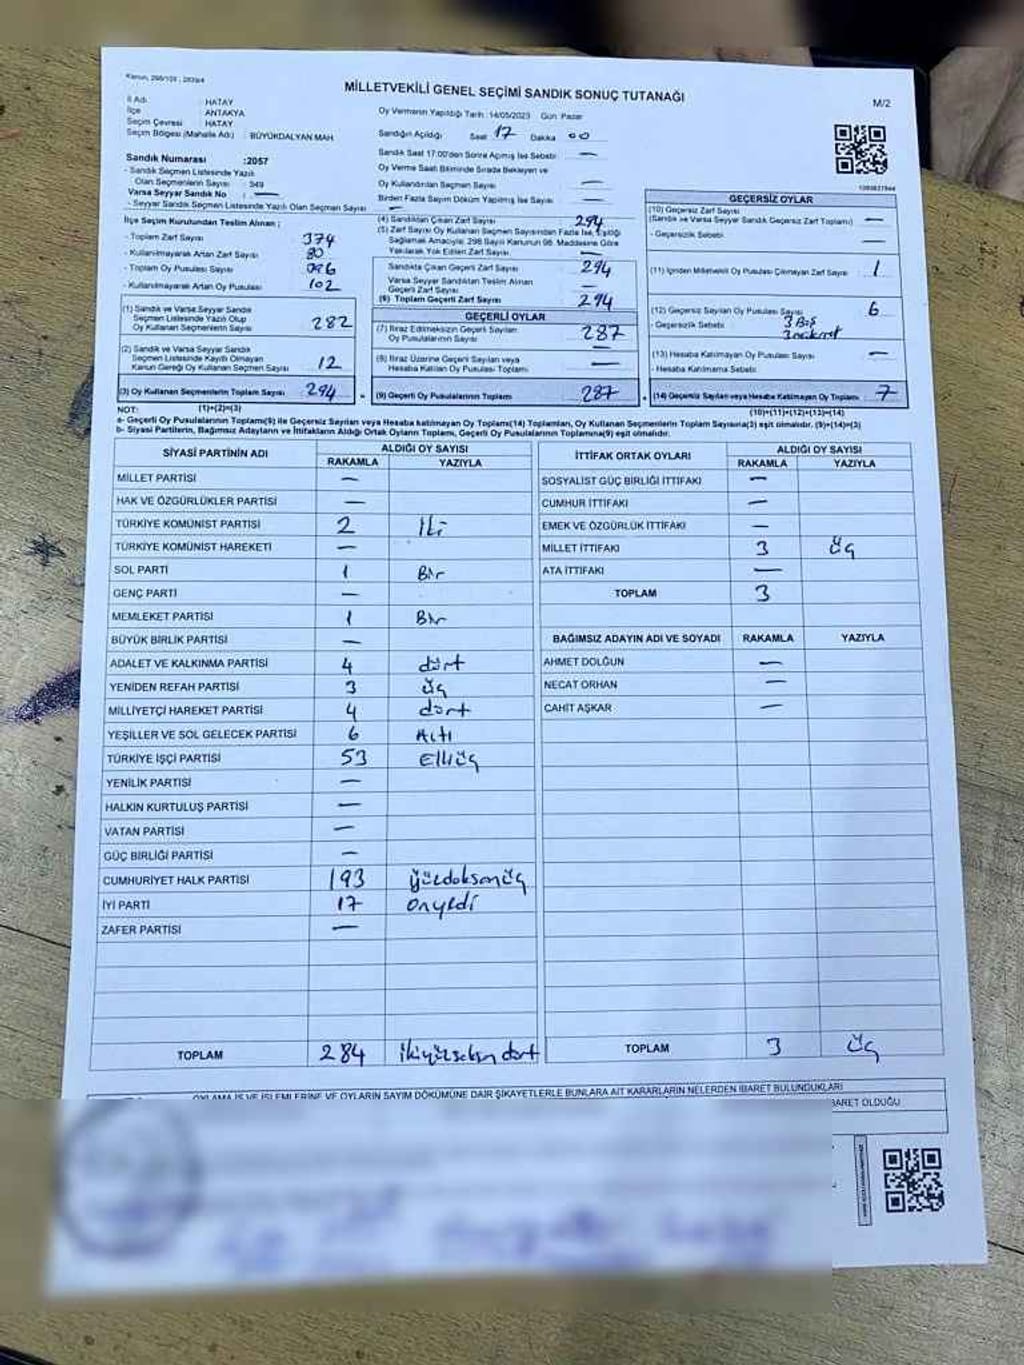 Kanun, 298/105 ; 2839/4
MİLLETVEKİLİ GENEL SEÇİMİ SANDIK SONUÇ TUTANAĞI
M/2
İl Adı : HATAY
İlçe : ANTAKYA
Seçim Çevresi : HATAY
Seçim Bölgesi (Mahalle Adı) : BÜYÜKDALYAN MAH
Oy Vermenin Yapıldığı Tarih : 14/05/2023 Gün: Pazar
Sandığın Açıldığı Saat 17 Dakika 00
Sandık Saat 17:00'den Sonra Açılmış İse Sebebi —
Oy Verme Saati Bitiminde Sırada Bekleyen ve
Oy Kullandırılan Seçmen Sayısı —
Birden Fazla Sayım Döküm Yapılmış İse Sayısı —
Sandık Numarası :2057
- Sandık Seçmen Listesinde Yazılı
Olan Seçmenlerin Sayısı : 349
Varsa Seyyar Sandık No : —
- Seyyar Sandık Seçmen Listesinde Yazılı Olan Seçmen Sayısı —
İlçe Seçim Kurulundan Teslim Alınan ;
- Toplam Zarf Sayısı 374
- Kullanılmayarak Artan Zarf Sayısı 80
- Toplam Oy Pusulası Sayısı
- Kullanılmayarak Artan Oy Pusulası 102
(1) Sandık ve Varsa Seyyar Sandık
Seçmen Listesinde Yazılı Olup
Oy Kullanan Seçmenlerin Sayısı 282
(2) Sandık ve Varsa Seyyar Sandık
Seçmen Listesinde Kayıtlı Olmayan
Kanun Gereği Oy Kullanan Seçmen Sayısı 12
(3) Oy Kullanan Seçmenlerin Toplam Sayısı 294
(1)+(2)=(3)
(4) Sandıktan Çıkan Zarf Sayısı 294
(5) Zarf Sayısı Oy Kullanan Seçmen Sayısından Fazla İse, Eşitliği
Sağlamak Amacıyla; 298 Sayılı Kanunun 98. Maddesine Göre
Yakılarak Yok Edilen Zarf Sayısı —
Sandıkta Çıkan Geçerli Zarf Sayısı 294
Varsa Seyyar Sandıktan Teslim Alınan
Geçerli Zarf Sayısı —
(6) Toplam Geçerli Zarf Sayısı 294
GEÇERLİ OYLAR
(7) İtiraz Edilmeksizin Geçerli Sayılan
Oy Pusulalarının Sayısı 287
(8) İtiraz Üzerine Geçerli Sayılan veya
Hesaba Katılan Oy Pusulası Toplamı —
(9) Geçerli Oy Pusulalarının Toplamı 287
GEÇERSİZ OYLAR
(10) Geçersiz Zarf Sayısı
(Sandık ve Varsa Seyyar Sandık Geçersiz Zarf Toplamı) —
- Geçersizlik Sebebi —
(11) İçinden Milletvekili Oy Pusulası Çıkmayan Zarf Sayısı 1
(12) Geçersiz Sayılan Oy Pusulası Sayısı 6
- Geçersizlik Sebebi 3 Boş
(13) Hesaba Katılmayan Oy Pusulası Sayısı —
- Hesaba Katılmama Sebebi
(14) Geçersiz Sayılan veya Hesaba Katılmayan Oy Toplamı 7
(10)+(11)+(12)+(13)=(14)
NOT:
a- Geçerli Oy Pusulaları Toplamı(9) ile Geçersiz Sayılan veya Hesaba katılmayan Oy Toplamı(14) Toplamları, Oy Kullanan Seçmenlerin Toplam Sayısına(3) eşit olmalıdır. (9)+(14)=(3)
b- Siyasi Partilerin, Bağımsız Adayların ve İttifakların Aldığı Ortak Oyların Toplamı, Geçerli Oy Pusulalarının Toplamına(9) eşit olmalıdır.
SİYASİ PARTİNİN ADI ALDIĞI OY SAYISI
RAKAMLA YAZIYLA
MİLLET PARTİSİ —
HAK VE ÖZGÜRLÜKLER PARTİSİ —
TÜRKİYE KOMÜNİST PARTİSİ 2 İki
TÜRKİYE KOMÜNİST HAREKETİ —
SOL PARTİ 1 Bir
GENÇ PARTİ —
MEMLEKET PARTİSİ 1 Bir
BÜYÜK BİRLİK PARTİSİ —
ADALET VE KALKINMA PARTİSİ 4 dört
YENİDEN REFAH PARTİSİ 3 üç
MİLLİYETÇİ HAREKET PARTİSİ 4 dört
YEŞİLLER VE SOL GELECEK PARTİSİ 6 Altı
TÜRKİYE İŞÇİ PARTİSİ 53 Elliüç
YENİLİK PARTİSİ —
HALKIN KURTULUŞ PARTİSİ —
VATAN PARTİSİ —
GÜÇ BİRLİĞİ PARTİSİ —
CUMHURİYET HALK PARTİSİ 193 yüzdoksanüç
İYİ PARTİ 17 onyedi
ZAFER PARTİSİ —
TOPLAM 284 ikiyüzseksendört
İTTİFAK ORTAK OYLARI ALDIĞI OY SAYISI
RAKAMLA YAZIYLA
SOSYALİST GÜÇ BİRLİĞİ İTTİFAKI —
CUMHUR İTTİFAKI —
EMEK VE ÖZGÜRLÜK İTTİFAKI —
MİLLET İTTİFAKI 3 üç
ATA İTTİFAKI —
TOPLAM 3
BAĞIMSIZ ADAYIN ADI VE SOYADI RAKAMLA YAZIYLA
AHMET DOLĞUN —
NECAT ORHAN —
CAHİT AŞKAR —
TOPLAM 3 üç
OYLAMA İŞ VE İŞLEMLERİNE VE OYLARIN SAYIM DÖKÜMÜNE DAİR ŞİKAYETLERLE BUNLARA AİT KARARLARIN NELERDEN İBARET BULUNDUKLARI
BARET OLDUĞU